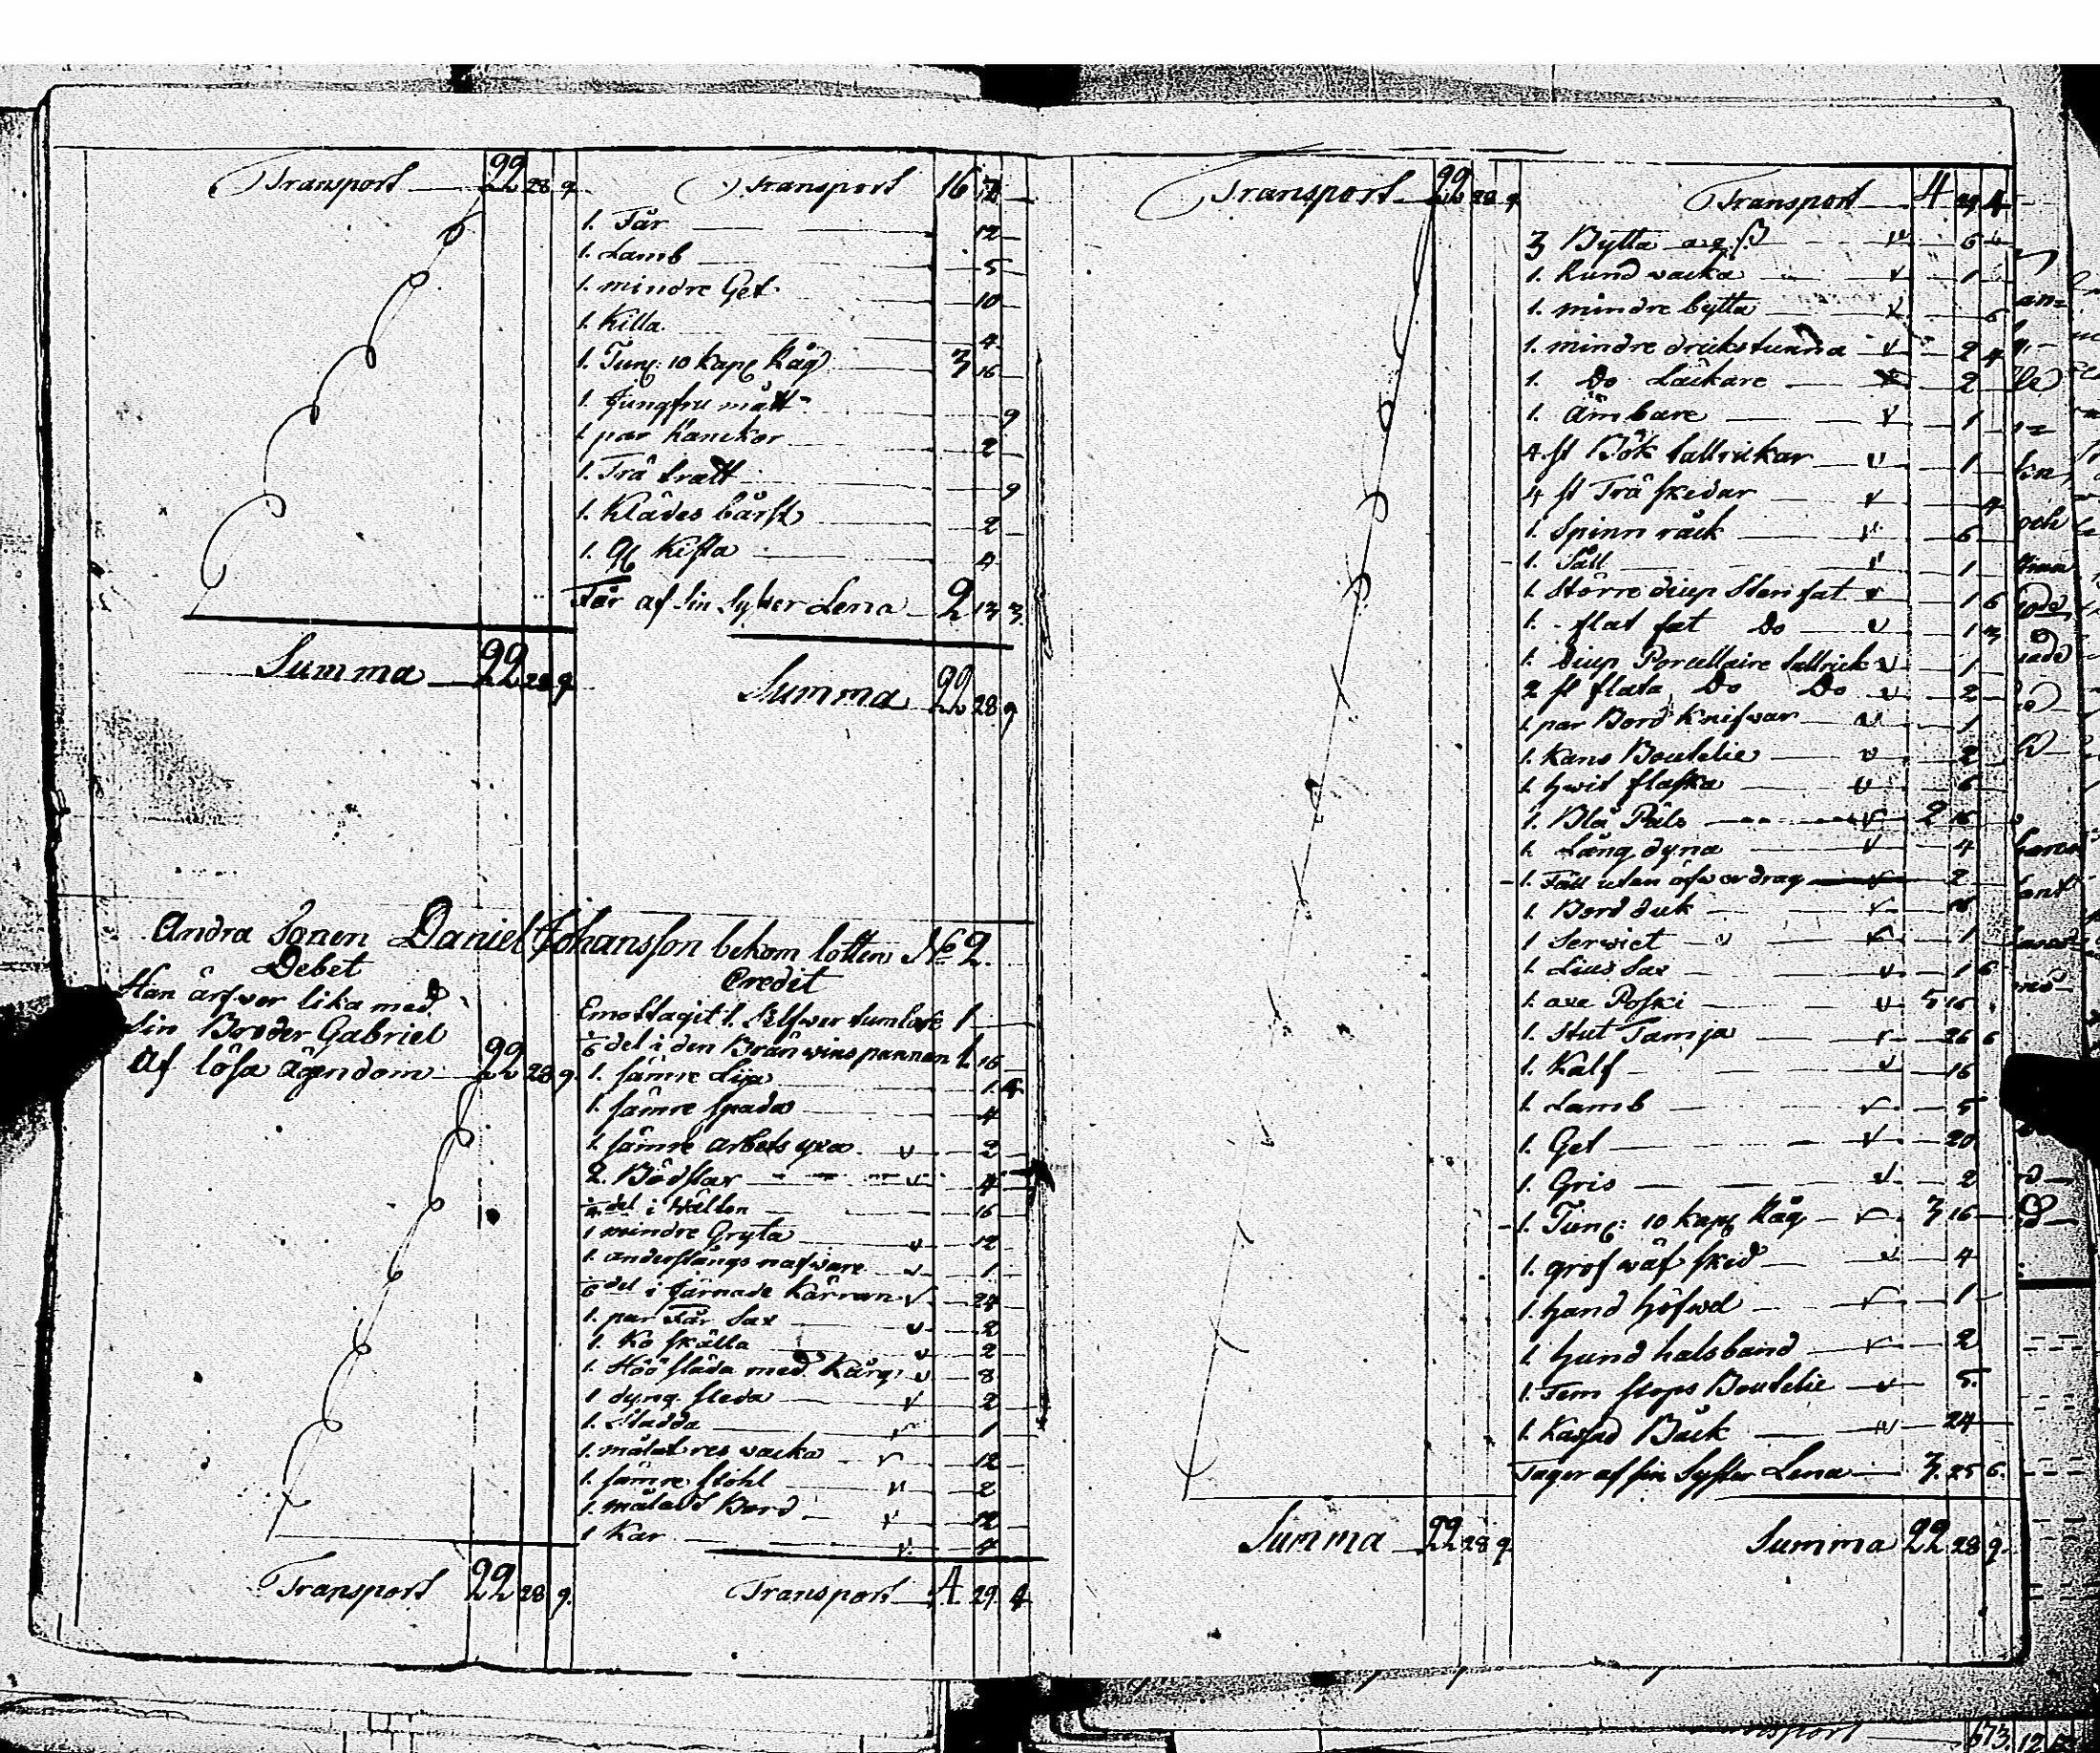 Transport 22 28 9.
Summa 22 28 9.
Transport 16 12
1. Får 12
1. Lamb 5
1. mindre Get 10
1. Killa 4
1. Tun: 10 kap Råg 3 16
1. Jungfru mått 9
1. par Kanekor 2
1. Trä tratt 9
1. Klädes bårst 2
1. Kista 4
Får af Sin Syster Lena 2 13 3.
Summa 22 28 9
Andra Sonen Daniel Johansson bekom lotten No 2.
Debet
Han ärfver lika med
Sin Broder Gabriel
Af lösa Ägendom 22 28 9.
Transport 22 28 9.
Credit
Emottagit 1. Silfwer tumlare 1
1/6 del i den Bränwins pannan 1. 16
1. sämre Lija 1. 4
1. sämre spada 4
1. sämre arbets yxa v 2
2. Bödslar v 4
del i Wälten 16
1 mindre Gryta v 12
1. anderstångs nafware v 1
1/6 del i Järnade Kärran v 24
1. par Får Sax v 2
1. Ko skälla v 2
1. Höö släda med Kårg v 8
1 dyng sleda v 2
1. Sladda v 1
1. målat res wacka v 12
1. sämre stohl v 2
1. målat Bord v 12
1 Kar v. 4
Transport 4 29. 4
Transport 22 28 9
Summa 22 28 9
Transport 4 29 4
3 Bytta v 6
1. Rund wacka v 1
1. mindre bytta v 6
1. mindre drickstunna v 2 4
1. Do Läckare 2
1. Ämbare v 1
4. st Bök tallrickar v 1
4 st Trä skedar v 4
1. Spinn råck v 6
1. Såll v 1
1. Större diup Sten fat v 1 6
1. - flat fat Do v 1 3
1. diup Porcellaine tallrick v 1
2 st flata Do Do v 2
1. par Bord Knifvar v 1
1. Kans Boutelie v 2
1. hwit flaska v 6
1. Blå Päls v 2 16
1. Lång dyna v 4
1. Fäll utan öfwerdrag v 2
1. Bord duk v
1 Serwiet v 1
1. Lius Sax v 1 6
1. oxe Poski v 5 16
1. Stut Tamja 26 6
1. Kalf v 16
1. Lamb v 5
1. Get v 20
1. Gris v 2
1. Tun: 10 kap Råg v 3 16
1. grof wäf sked v 4
1. hand höfwel v 1
1. hund halsband v 2
1. Fem stops Boutelie v 5.
1. Kasad Båck v 24
Tager af sin Syster Lena 3. 25 6.
Summa 22 28 9.